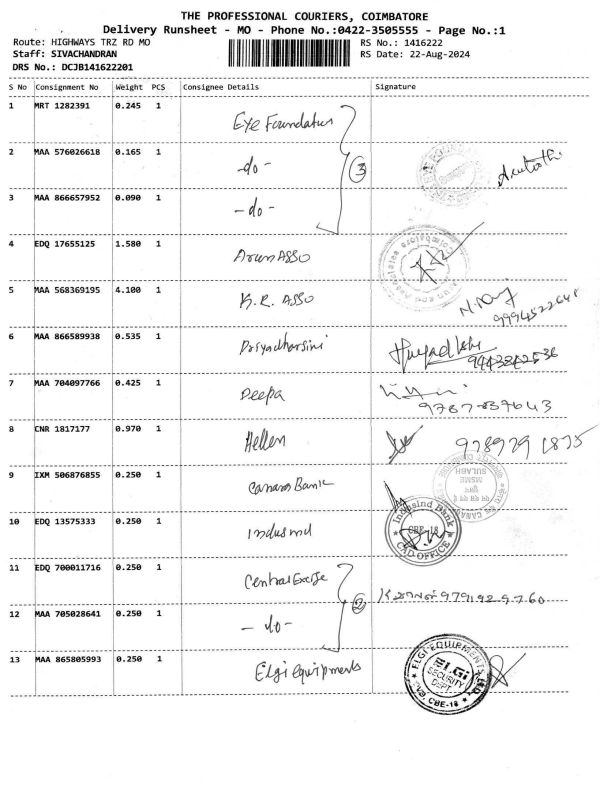 THE PROFESSIONAL COURIERS, COIMBATORE
Delivery Runsheet - MO - Phone No.:0422-3505555 - Page No.:1
Route: HIGHWAYS TRZ RD MO RS No.: 1416222
Staff: SIVACHANDRAN RS Date: 22-Aug-2024
DRS No.: DCJB141622201
S No Consignment No Weight PCS Consignee Details Signature
1 MRT 1282391 0.245 1 Eye Foundation
2 MAA 576026618 0.165 1 -do- 3
3 MAA 866657952 0.090 1 -do-
4 EDQ 17655125 1.580 1 Arun ASSO
5 MAA 568369195 4.100 1 K.R. ASSO
6 MAA 866589938 0.535 1 Priyadharsini
7 MAA 704097766 0.425 1 Deepa
8 CNR 1817177 0.970 1 Hellen
9 IXM 506876855 0.250 1 Canara Bank
SULABH
MSME
10 EDQ 13575333 0.250 1 Indusind Indusind Bank CBE-18 CAD.OFFICE
11 EDQ 700011716 0.250 1 Central Excise
2
12 MAA 705028641 0.250 1 -do-
13 MAA 865805993 0.250 1 Elgi Equipments ELGI EQUIPMENTS LTD. ELGi SECURITY DEPT. CBE-18